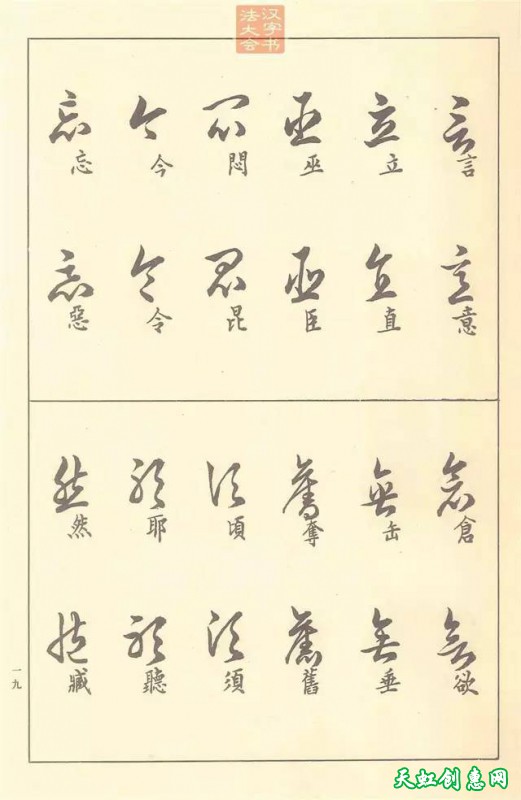 汉字书
法大会
言意
立直
巫臣
悶昆
今令
忘惡
倉欲
缶垂
奪舊
頃須
耶聽
然臧
一九
天虹创惠网